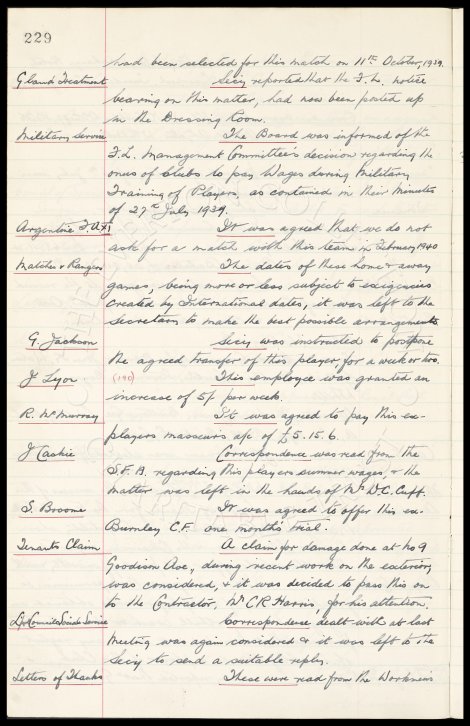 229
had been selected for this match on 11th October, 1939.
Gland Treatment Secy reported that the F.L. notice
bearing on this matter, had now been posted up
in the Dressing Room.
Military Service The Board was informed of the
F.L. Management Committee's decision regarding the
onus of Clubs to pay Wages during Military
Training of Players, as contained in their Minutes
of 27th July 1939.
Argentine F.A. It was agreed that we do not
ask for a match with this team in February 1940
Matches v Rangers The dates of these home & away
games, being more or less subject to exigencies
created by International dates, it was left to the
Secretary to make the best possible arrangements.
G. Jackson Secy was instructed to postpone
the agreed transfer of this player for a week or two.
J Lyon (190) This employee was granted an
increase of 5/- per week.
R. McMurray It was agreed to pay this ex-
players masseurs a/c of £5.15.6.
J Caskie Correspondence was read from the
S.F.A. regarding this players summer wages, & the
matter was left in the hands of Mr W.C. Cuff.
S. Broome It was agreed to offer this ex-
Burnley C.F. one month's trial.
Tenants Claim A claim for damage done at No 9
Goodison Ave, during recent work on the exterior,
was considered, & it was decided to pass this on
to the Contractor, Mr C.R. Harris, for his attention.
Service Correspondence dealt with at last
Meeting was again considered & it was left to the
Secy to send a suitable reply.
Letters of Thanks These were read from the Workmens